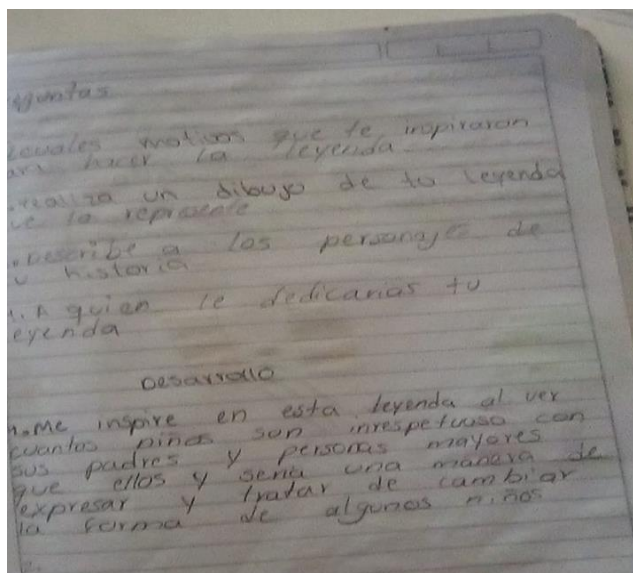 guntas
cuales motivos que te inspiraron
hacer la leyenda
realiza un dibujo de tu leyenda
ue la represente
Describe a los personajes de
u historia
A quien le dedicarias tu
eyenda
Desarrollo
1. Me inspire en esta leyenda al ver
cuantos niños son inrespetuoso con
sus padres y personas mayores
que ellos y seria una manera de
expresar y tratar de cambiar
la forma de algunos niños